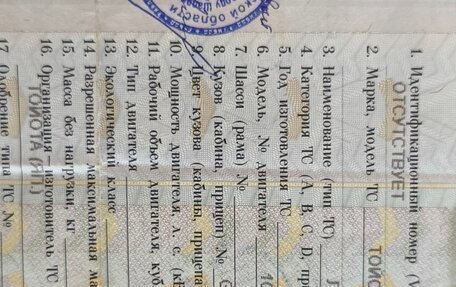 1. Идентификационный номер (V
ОТСУТСТВУЕТ
2. Марка, модель ТС
ТОЙО
3. Наименование (тип ТС)
4. Категория ТС (А, В, С, D, пр
5. Год изготовления ТС
6. Модель, № двигателя
7. Шасси (рама) №
8. Кузов (кабина, прицеп) №
9. Цвет кузова (кабины, прицепа
10. Мощность двигателя, л. с. (кВ
11. Рабочий объем двигателя, куб
12. Тип двигателя
13. Экологический класс
14. Разрешенная максимальная ма
15. Масса без нагрузки, кг
16. Организация—изготовитель ТС
ТОЙОТА (ЯП.)
17. Одобрение типа ТС №